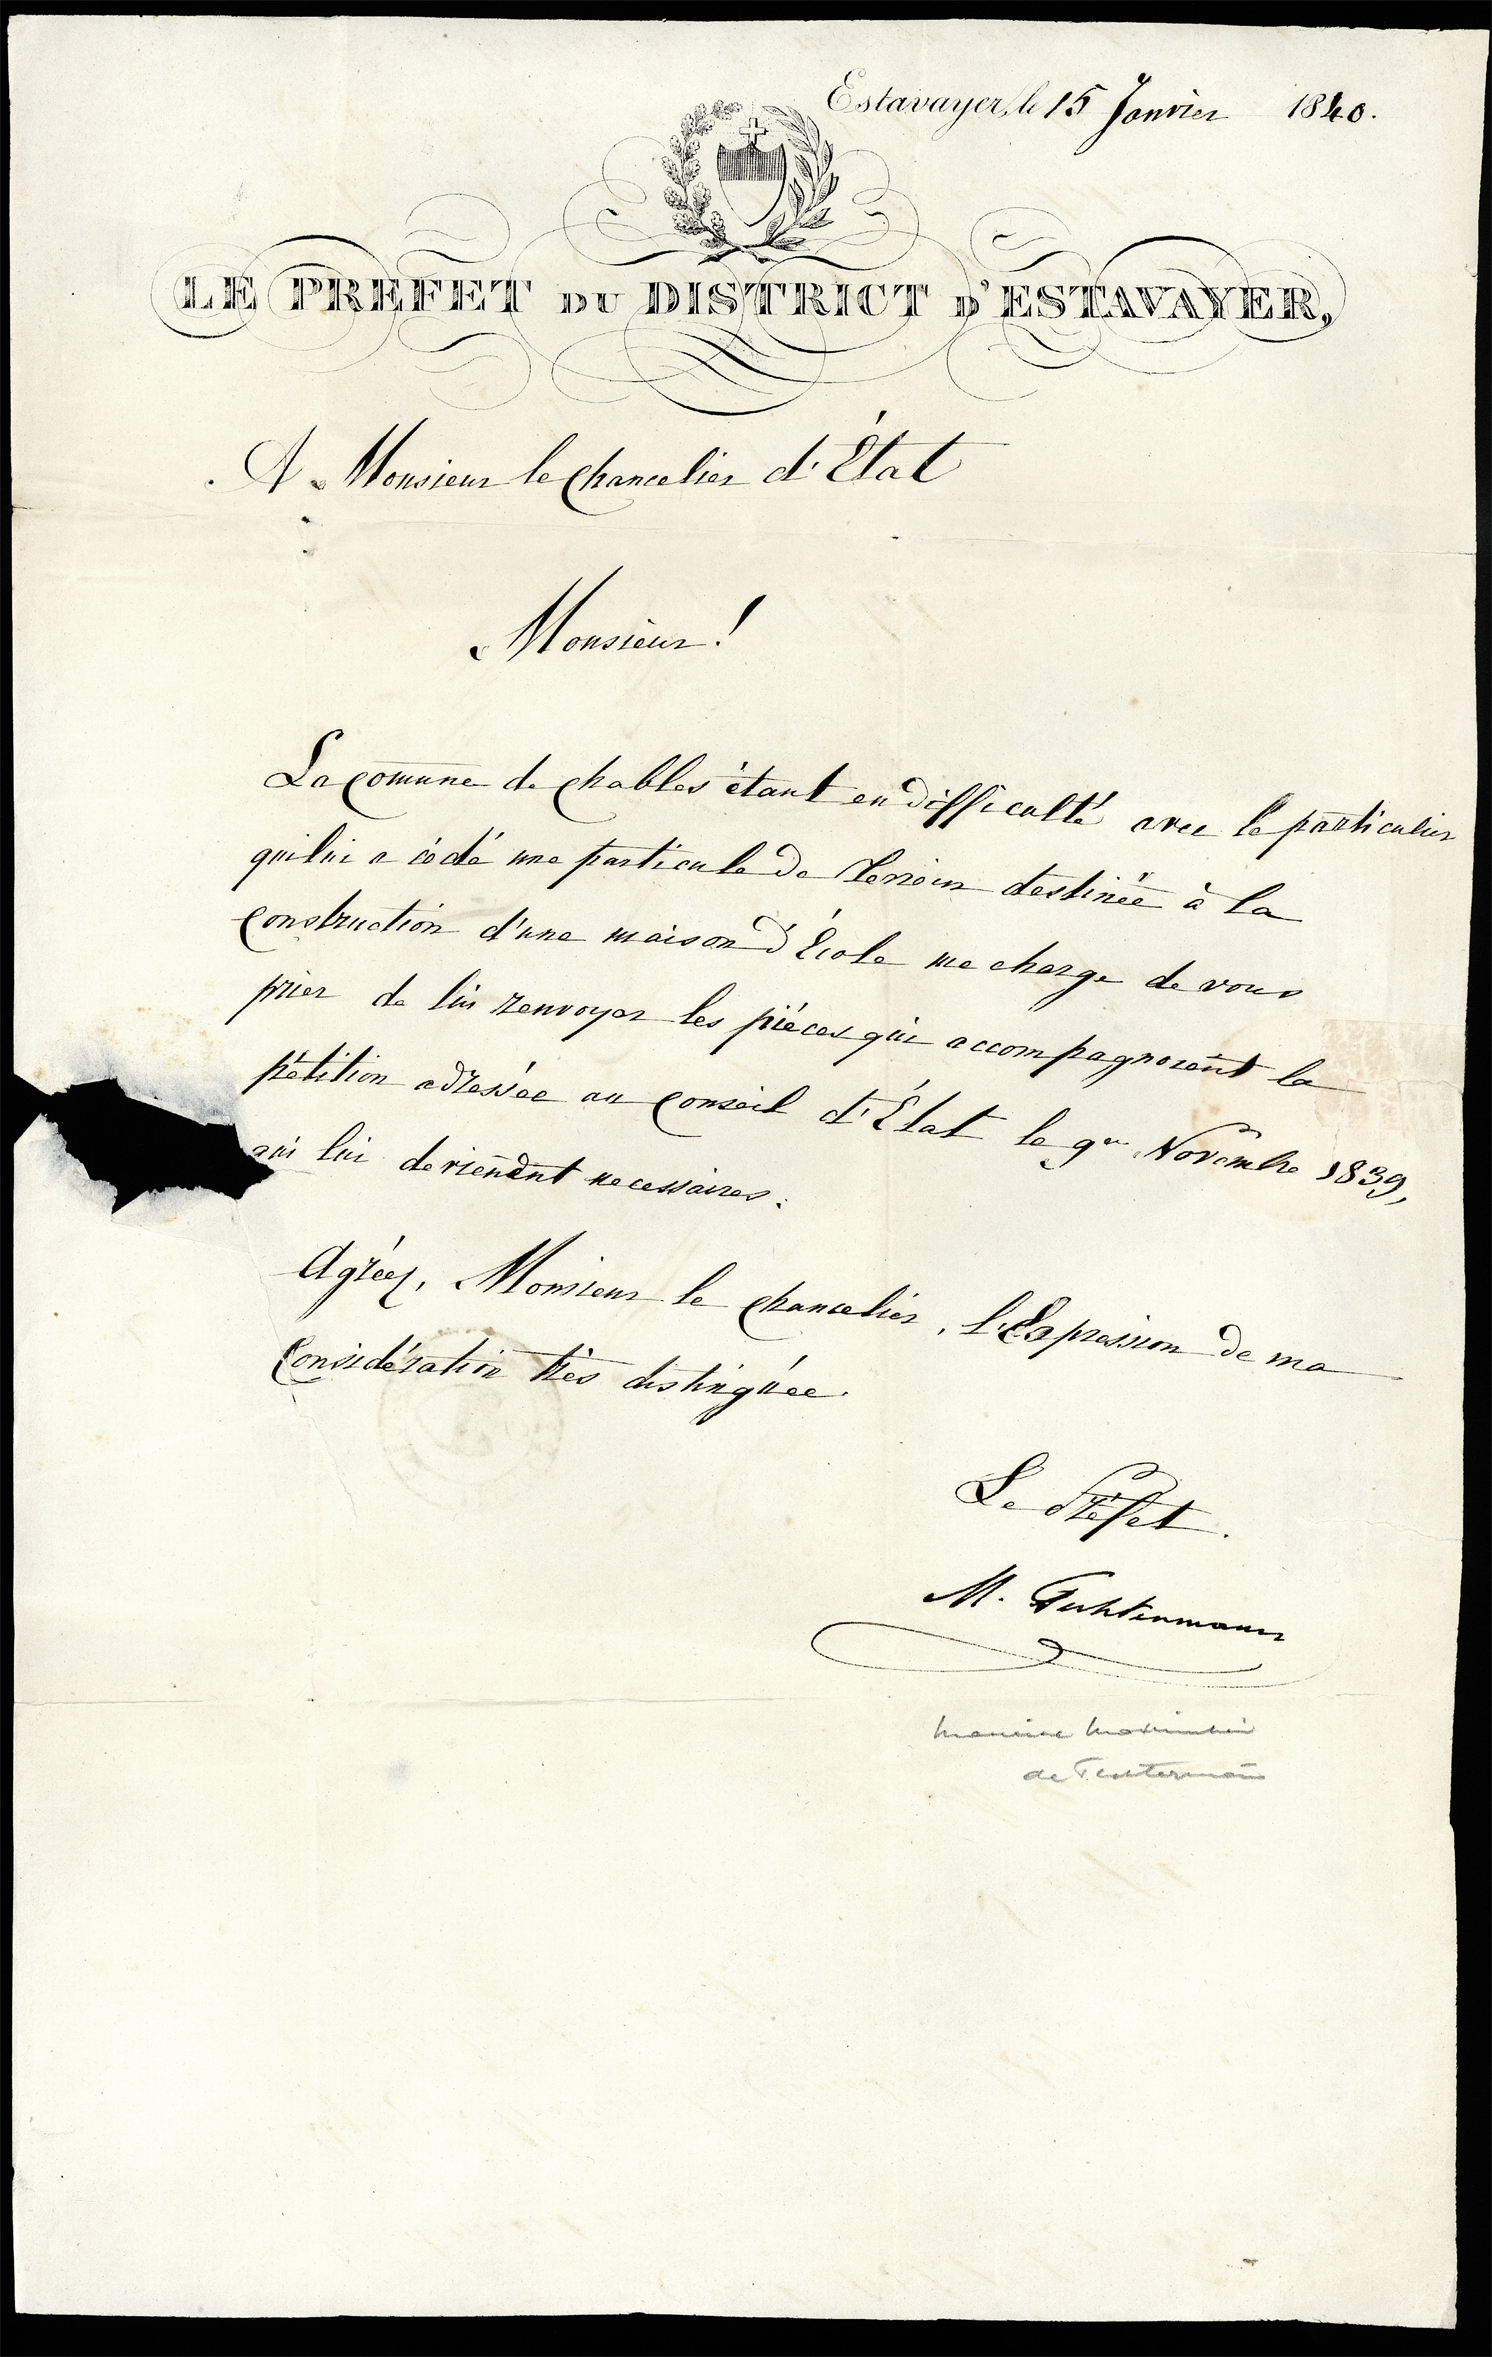 Estavayer, le 15 Janvier 1840.
LE PREFET DU DISTRICT D'ESTAVAYER,
A Monsieur le Chancelier d'État
Monsieur!
La Comune de Chables étant en difficulté avec le particulier
qui lui a cédé une particule de terrein destinée à la
Construction d'une maison d'École me charge de vous
prier de lui renvoyer les piéces qui accompagnoient la
pétition adressée au Conseil d'État le 9er Novembre 1839,
qui lui deviennent necessaires.
Agréez, Monsieur le Chancelier, l'Expression de ma
Considération très distinguée.
Le Préfet.
M. Techtermann
de Techtermann